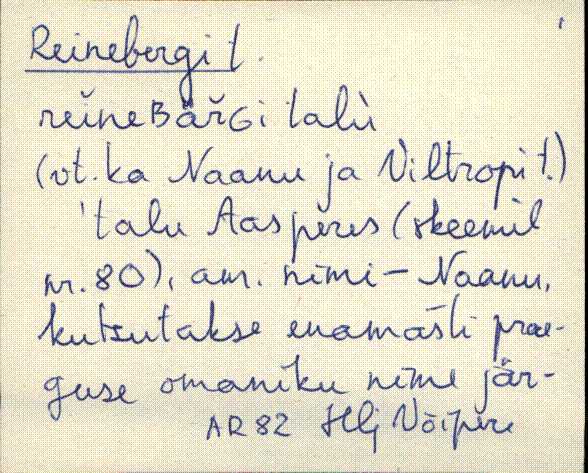 Reinebergi t.
rei̬neʙär̆ɢi talù
(vt. ka Naanu ja Viltropi t.)
'talu Aasperes (skeemil
nr. 80), am. nimi – Naanu,
kutsutakse enamasti prae-
guse omaniku nime jär-
AR 82 Hlj Võipere